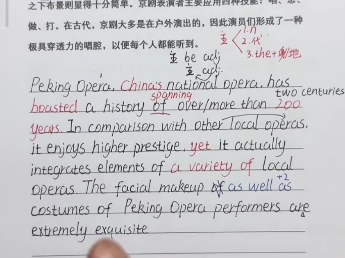 之下布景则显得十分简单。京剧表演者主要应用四种技能：唱、念、
做、打。在古代，京剧大多是在户外演出的，因此演员们形成了一种
极具穿透力的唱腔，以便每个人都能听到。
主 1. n
2. 代
3. the+
主 be adj
主, adj.
Peking Opera, China's national opera, has
spanning two centuries
boasted a history of over/more than 200
years. In comparison with other local operas,
it enjoys higher prestige, yet it actually
integrates elements of a variety of local
operas. The facial makeup of as well as +2
costumes of Peking Opera performers are
extremely exquisite